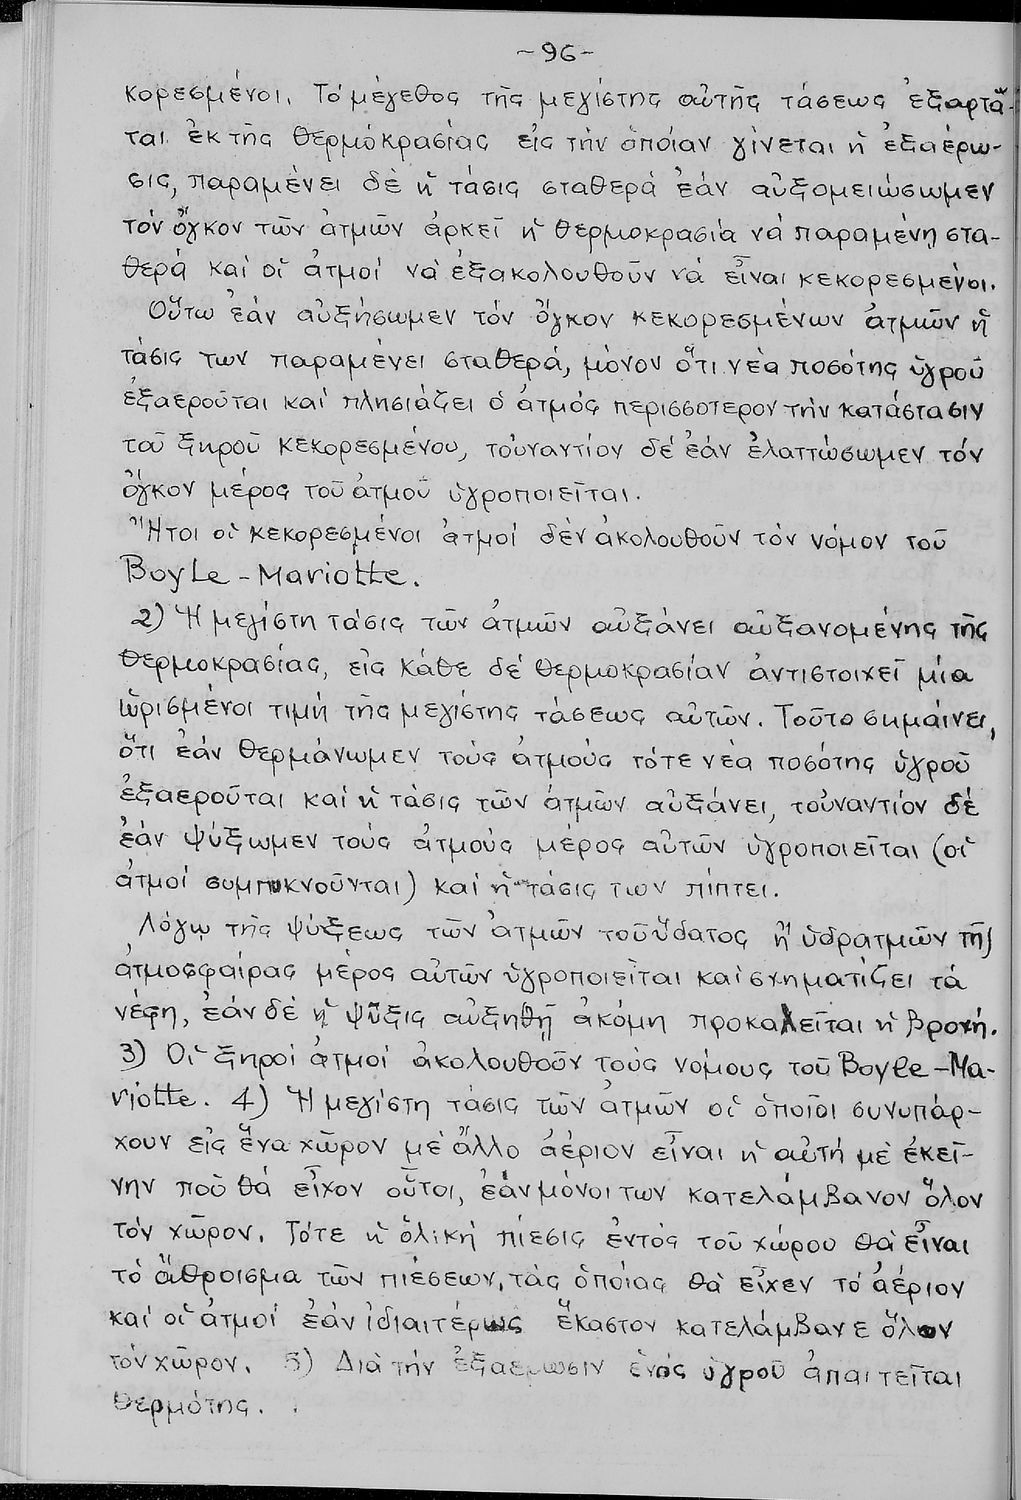 -96-
κορεσμένοι. Τό μέγεθος τῆς μεγίστης αὐτῆς τάσεως ἐξαρτᾶ-
ται ἐκ τῆς θερμοκρασίας εἰς τήν ὁποίαν γίνεται ἡ ἐξαέρω-
σις, παραμένει δέ ἡ τάσις σταθερά ἐάν αὐξομειώσωμεν
τόν ὄγκον τῶν ἀτμῶν ἀρκεῖ ἡ θερμοκρασία νά παραμένη στα-
θερά καί οἱ ἀτμοί νά ἐξακολουθοῦν νά εἶναι κεκορεσμένοι.
Οὕτω ἐάν αὐξήσωμεν τόν ὄγκον κεκορεσμένων ἀτμῶν ἡ
τάσις των παραμένει σταθερά, μόνον ὅτι νέα ποσότης ὑγροῦ
ἐξαεροῦται καί πλησιάζει ὁ ἀτμός περισσοτερον τήν κατάστασιν
τοῦ ξηροῦ κεκορεσμένου, τοὐναντίον δέ ἐάν ἐλαττώσωμεν τόν
ὄγκον μέρος τοῦ ἀτμοῦ ὑγροποιεῖται.
Ἤτοι οἱ κεκορεσμένοι ἀτμοί δέν ἀκολουθοῦν τόν νόμον τοῦ
Boyle-Mariotte.
2) Ἡ μεγίστη τάσις τῶν ἀτμῶν αὐξάνει αὐξανομένης τῆς
θερμοκρασίας, εἰς κάθε δέ θερμοκρασίαν ἀντιστοιχεῖ μία
ὡρισμένοι τιμή τῆς μεγίστης τάσεως αὐτῶν. Τοῦτο σημαίνει,
ὅτι ἐάν θερμάνωμεν τούς ἀτμούς τότε νέα ποσότης ὑγροῦ
ἐξαεροῦται καί ἡ τάσις τῶν ἀτμῶν αὐξάνει, τοὐναντίον δέ
ἐάν ψύξωμεν τούς ἀτμούς μέρος αὐτῶν ὑγροποιεῖται (οἱ
ἀτμοί συμπυκνοῦνται) καί ἡ τάσις των πίπτει.
Λόγῳ τῆς ψύξεως τῶν ἀτμῶν τοῦ ὕδατος ἤ ὑδρατμῶν τῆς
ἀτμοσφαίρας μέρος αὐτῶν ὑγροποιεῖται καί σχηματίζει τά
νέφη, ἐάν δέ ἡ ψῦξις αὐξηθῆ ἀκόμη προκαλεῖται ἡ βροχή.
3) Οἱ ξηροί ἀτμοί ἀκολουθοῦν τούς νόμους τοῦ Boyle-Ma-
riotte. 4) Ἡ μεγίστη τάσις τῶν ἀτμῶν οἱ ὁποῖοι συνυπάρ-
χουν εἰς ἕνα χῶρον μέ ἄλλο ἀέριον εἶναι ἡ αὐτή μέ ἐκεί-
νην πού θά εἶχον οὗτοι, ἐάν μόνοι των κατελάμβανον ὅλον
τόν χῶρον. Τότε ἡ ὁλική πίεσις ἐντός τοῦ χώρου θά εἶναι
τό ἄθροισμα τῶν πιέσεων, τάς ὁποίας θά εἶχεν τό ἀέριον
καί οἱ ἀτμοί ἐάν ἰδιαιτέρως ἕκαστον κατελάμβανε ὅλον
τόν χῶρον. 5) Διά τήν ἐξαερωσιν ἑνός ὑγροῦ ἀπαιτεῖται
θερμότης.